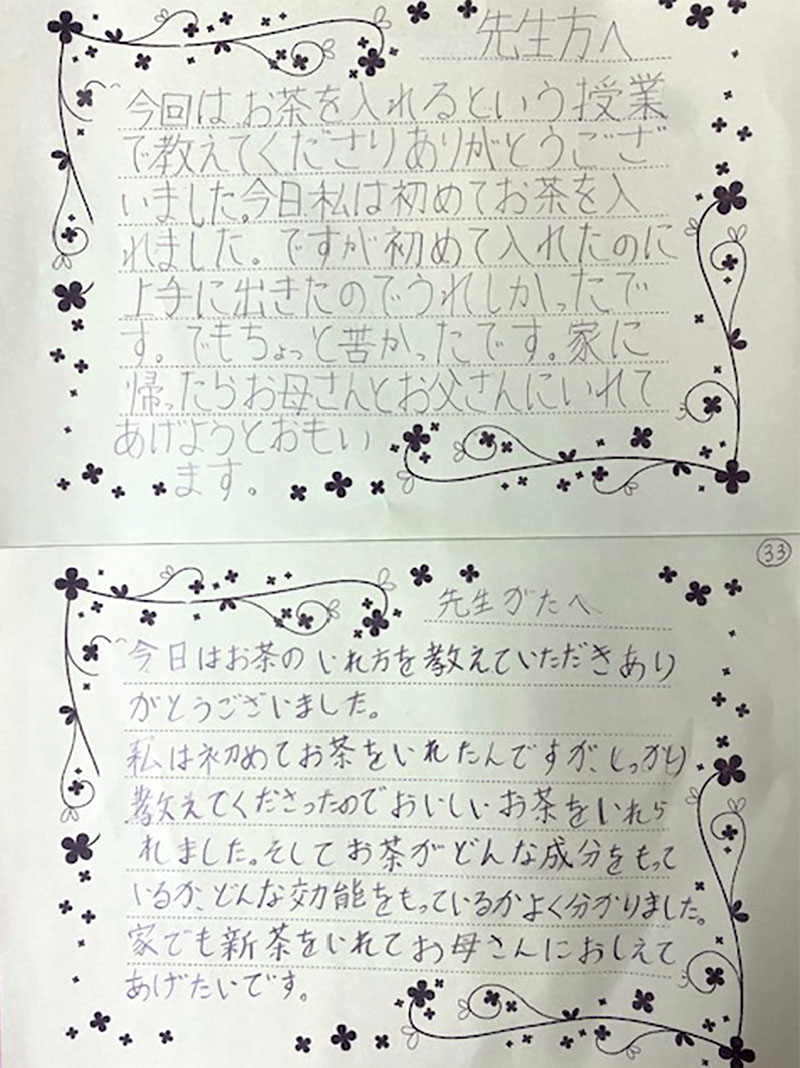 先生方へ
今回はお茶を入れるという授業
で教えてくださりありがとうござ
いました。今日、私は初めてお茶を入
れました。ですが初めて入れたのに
上手に出きたのでうれしかったで
す。でもちょっと苦かったです。家に
帰ったらお母さんとお父さんにいれて
あげようとおもい
ます。
33
先生がたへ
今日はお茶のいれ方を教えていただきあり
がとうございました。
私は初めてお茶をいれたんですが、しっかり
教えてくださったのでおいしいお茶をいれら
れました。そしてお茶がどんな成分をもって
いるか、どんな効能をもっているかよく分かりました。
家でも新茶をいれてお母さんにおしえて
あげたいです。